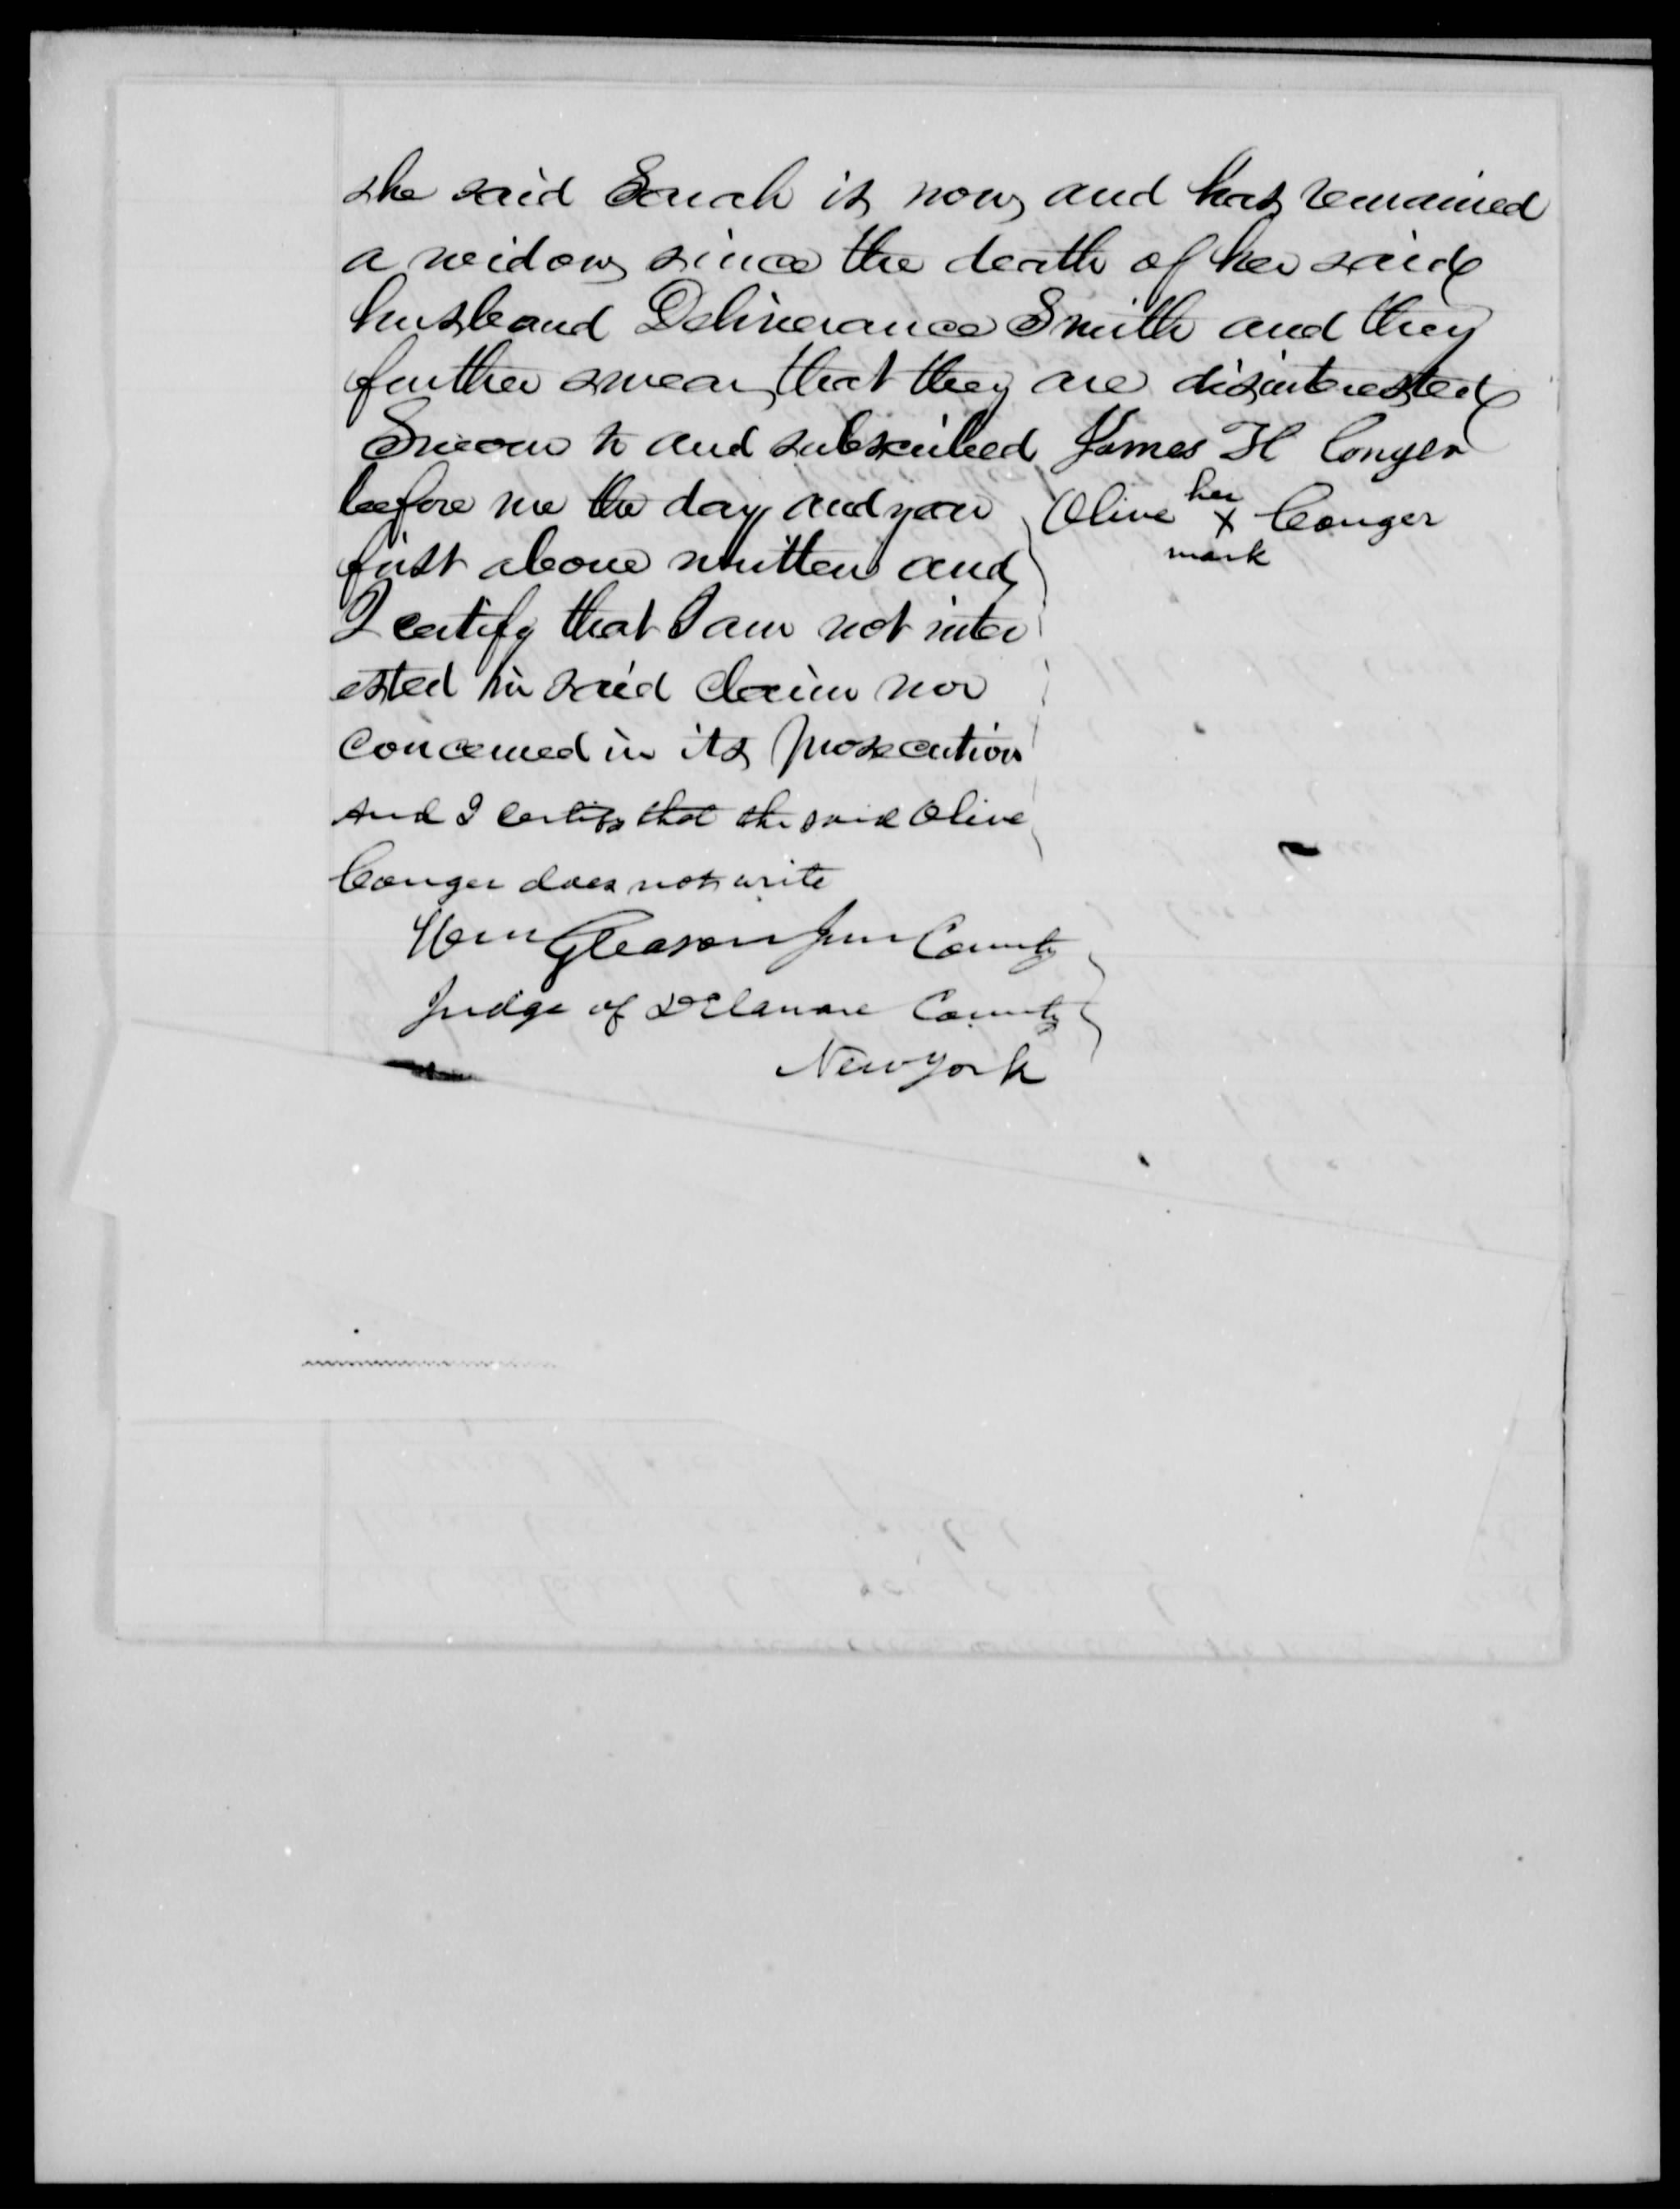 she said Sarah is now and has remained
a widow since the death of her said
husband Deliverance Smith and they
further swear that they are disinterested
Sworn to and subscribed James H Conger
before me the day and year Olive her X mark Conger
first above written and
I certify that I am not inter
ested in said claim nor
concerned in its prosecution
And I certify that the said Olive
Conger does not write
Wm Gleason Jun County
Judge of Delaware County
New York